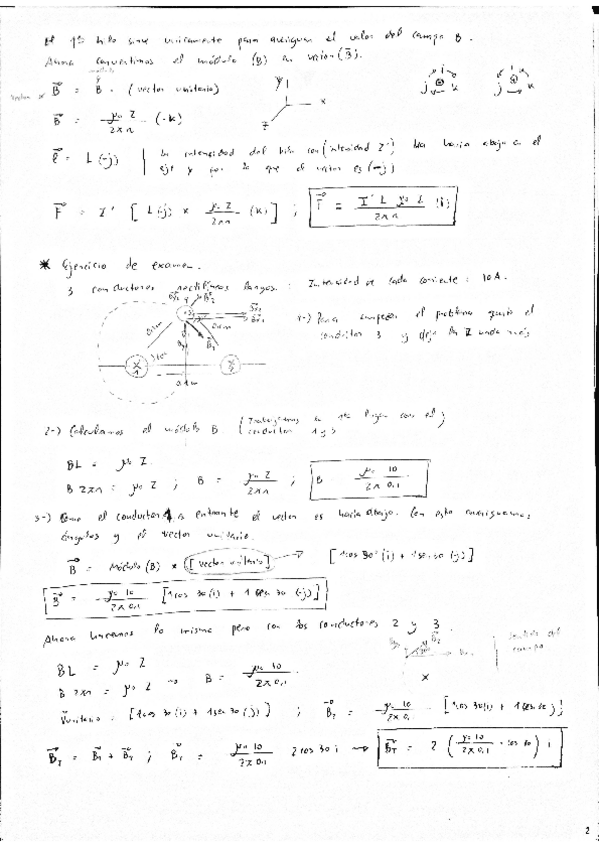 El 1er hilo sirve unicamente para averiguar el valor del campo B.
Ahora convertimos el módulo (B) en vector (B⃗).
B⃗ = B · (vector unitario)
módulo
vector
y
x
z
i
j
k
i
j
k
B⃗ = μ₀ I / 2πr (-k)
ℓ⃗ = L (-j) | La intensidad del hilo con (intensidad I') va hacia abajo en el
eje y por lo que el vector es (-j)
F⃗ = I' [ L(-j) × μ₀ I / 2πr (-k) ] ; F⃗ = I' L μ₀ I / 2πr (i)
* Ejercicio de examen.
3 conductores rectilíneos largos. Intensidad de cada corriente: 10A.
0.1m
0.1m
0.1m
X
1
X
1-) Para empezar el problema quito el
conductor 3 y dejo los 2 nada más
2-) Calculamos el módulo B (Trabajamos en 1er lugar con el
conductor 1 y 3)
BL = μ₀ I
B 2πr = μ₀ I ; B = μ₀ I / 2πr ; B = μ₀ 10 / 2π 0,1
3-) Como el conductor 1 es entrante el vector es hacia abajo. Con esto conseguimos
ángulos y el vector unitario.
B⃗ = módulo (B) * [vector unitario] → [1cos 30° (i) + 1sen 30 (-j)]
B⃗ = μ₀ 10 / 2π 0,1 [1cos 30 (i) + 1 sen 30 (-j)]
Ahora hacemos lo mismo pero con los conductores 2 y 3.
BL = μ₀ I
B 2πr = μ₀ I → B = μ₀ 10 / 2π 0,1
sentido del
campo
X
Unitario = [1cos 30 (i) + 1sen 30 (j)] ; B⃗₂ = μ₀ 10 / 2π 0,1 [1cos 30 (i) + 1sen 30 j]
B⃗T = B⃗₁ + B⃗₂ ; B⃗T = μ₀ 10 / 2π 0,1 2 cos 30 i → B⃗T = 2 ( μ₀ 10 / 2π 0,1 · cos 30 ) i
2